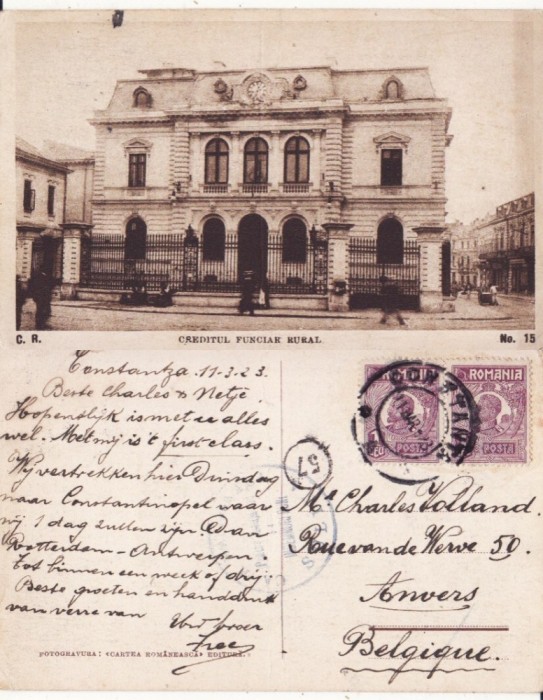 C. R. CREDITUL FUNCIAR RURAL No. 15
Constantza. 11-3-23.
Beste Charles & Netje.
Hopenslijk is met u alles
wel. Met mij is 't first class.
Wij vertrekken hier Dinsdag
naar Constantinopel waar
wij 1 dag zullen zijn Dan
Rotterdam - Antwerpen.
Tot binnen een week of drij.
Beste groeten en handdruk
van verre van
Uw broer
POTOGRAVURA: «CARTEA ROMÂNEASCĂ» EDITURA.
ROMANIA
ROMANIA
1
LEU
POSTA
POSTA
57
Mr Charles Holland.
Rue van de Werve 50.
Anvers
Belgique.